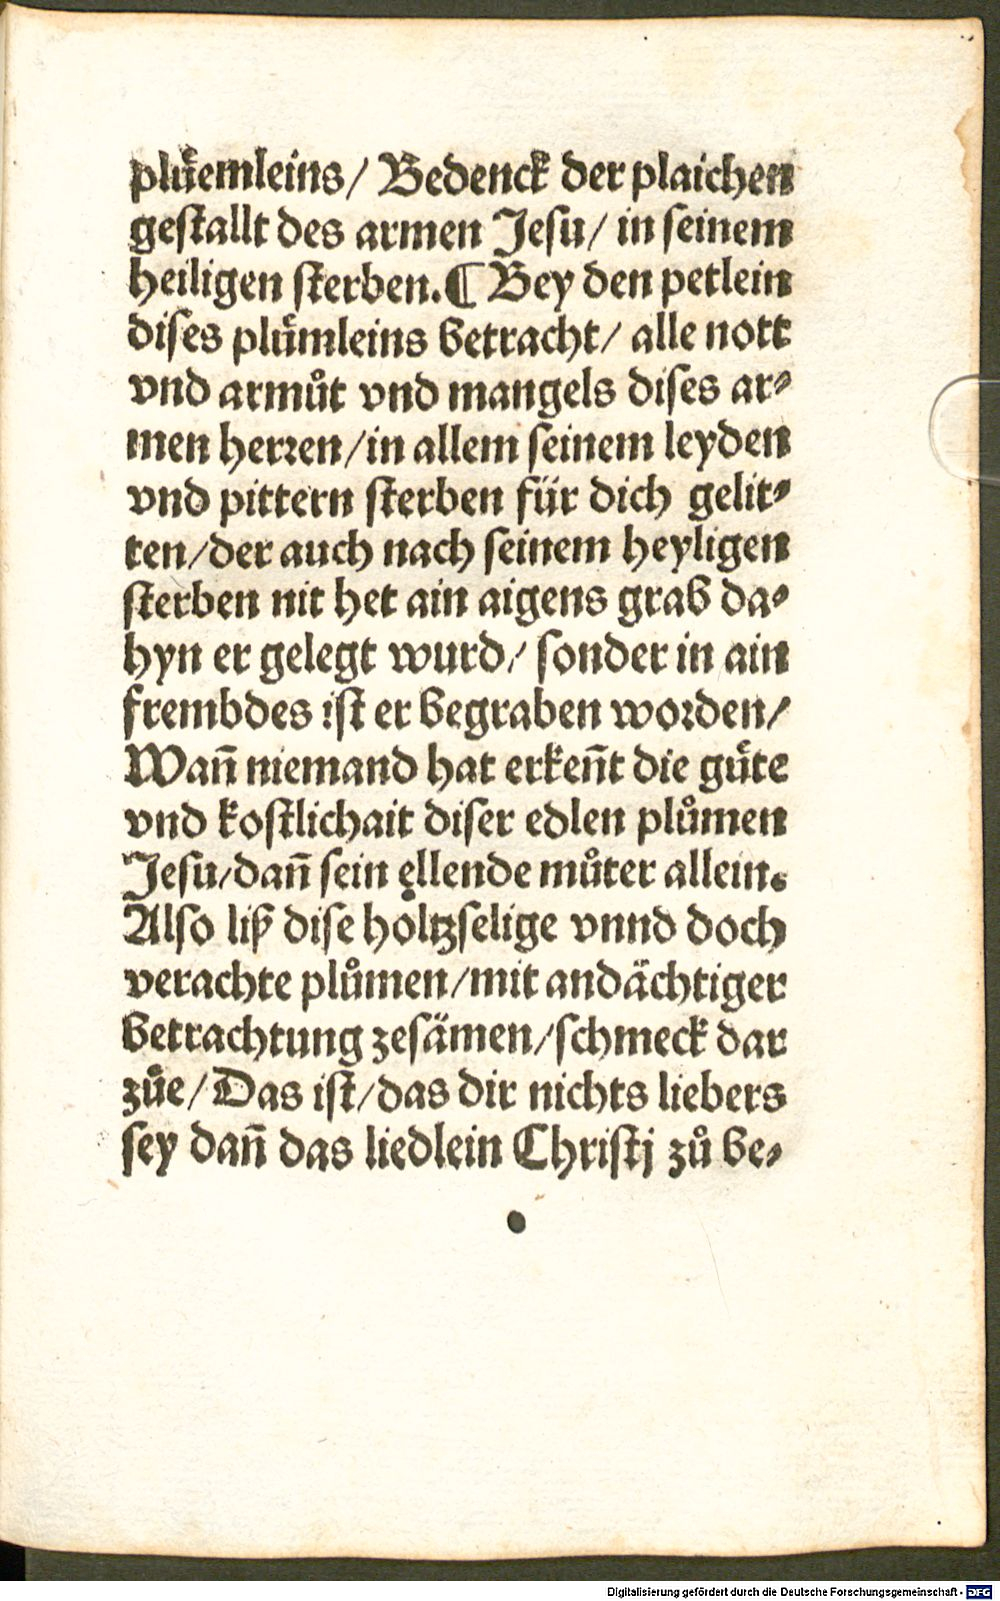 pluͤemleins/ Bedenck der plaichen
gestallt des armen Jesu/ in seinem
heiligen sterben. ¶ Bey den petlein
dises pluͤmleins betracht/ alle nott
vnd armuͦt vnd mangels dises ar⸗
men herꝛen/in allem seinem leyden
vnd pittern sterben für dich gelit⸗
ten/der auch nach seinem heyligen
sterben nit het ain aigens grab da⸗
hyn er gelegt wurd/ sonder in ain
frembdes ist er begraben woꝛden/
Wañ niemand hat erkeñt die guͤte
vnd kostlichait diser edlen pluͦmen
Jesu/dañ sein ellende muͦter allein.
Also liß dise holtzselige vnnd doch
verachte pluͦmen/mit andächtiger
betrachtung zesämen/schmeck dar
zuͦe/ Das ist/das dir nichts liebers
sey dañ das liedlein Christj zuͦ be⸗
Digitalisierung gefördert durch die Deutsche Forschungsgemeinschaft - DFG